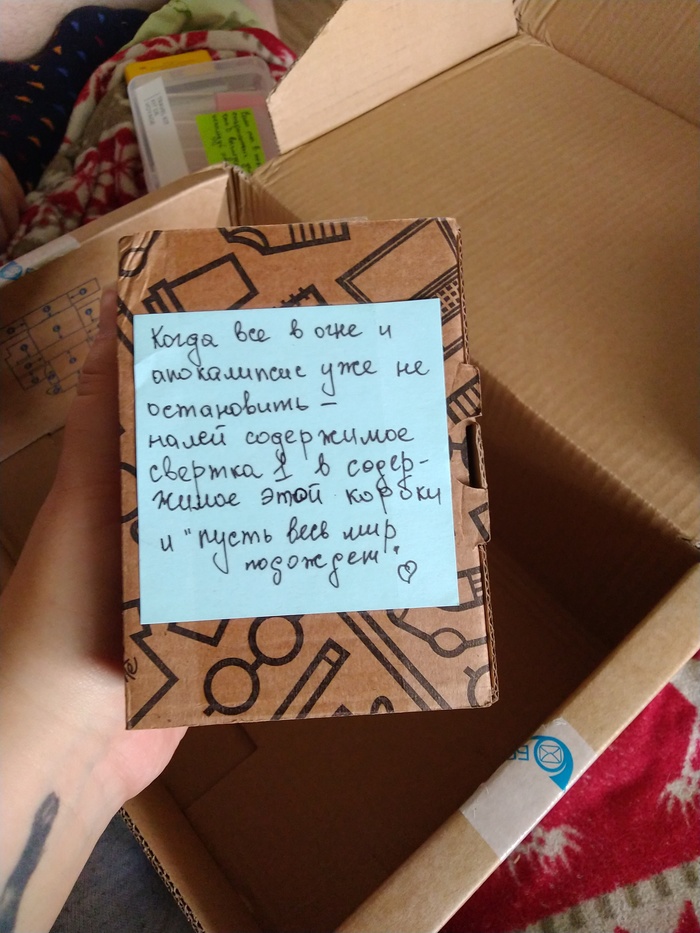 Когда все в огне и
апокалипсис уже не
остановить –
налей содержимое
свертка 1 в содер-
жимое этой коробки
и "пусть весь мир
подождет". ♡